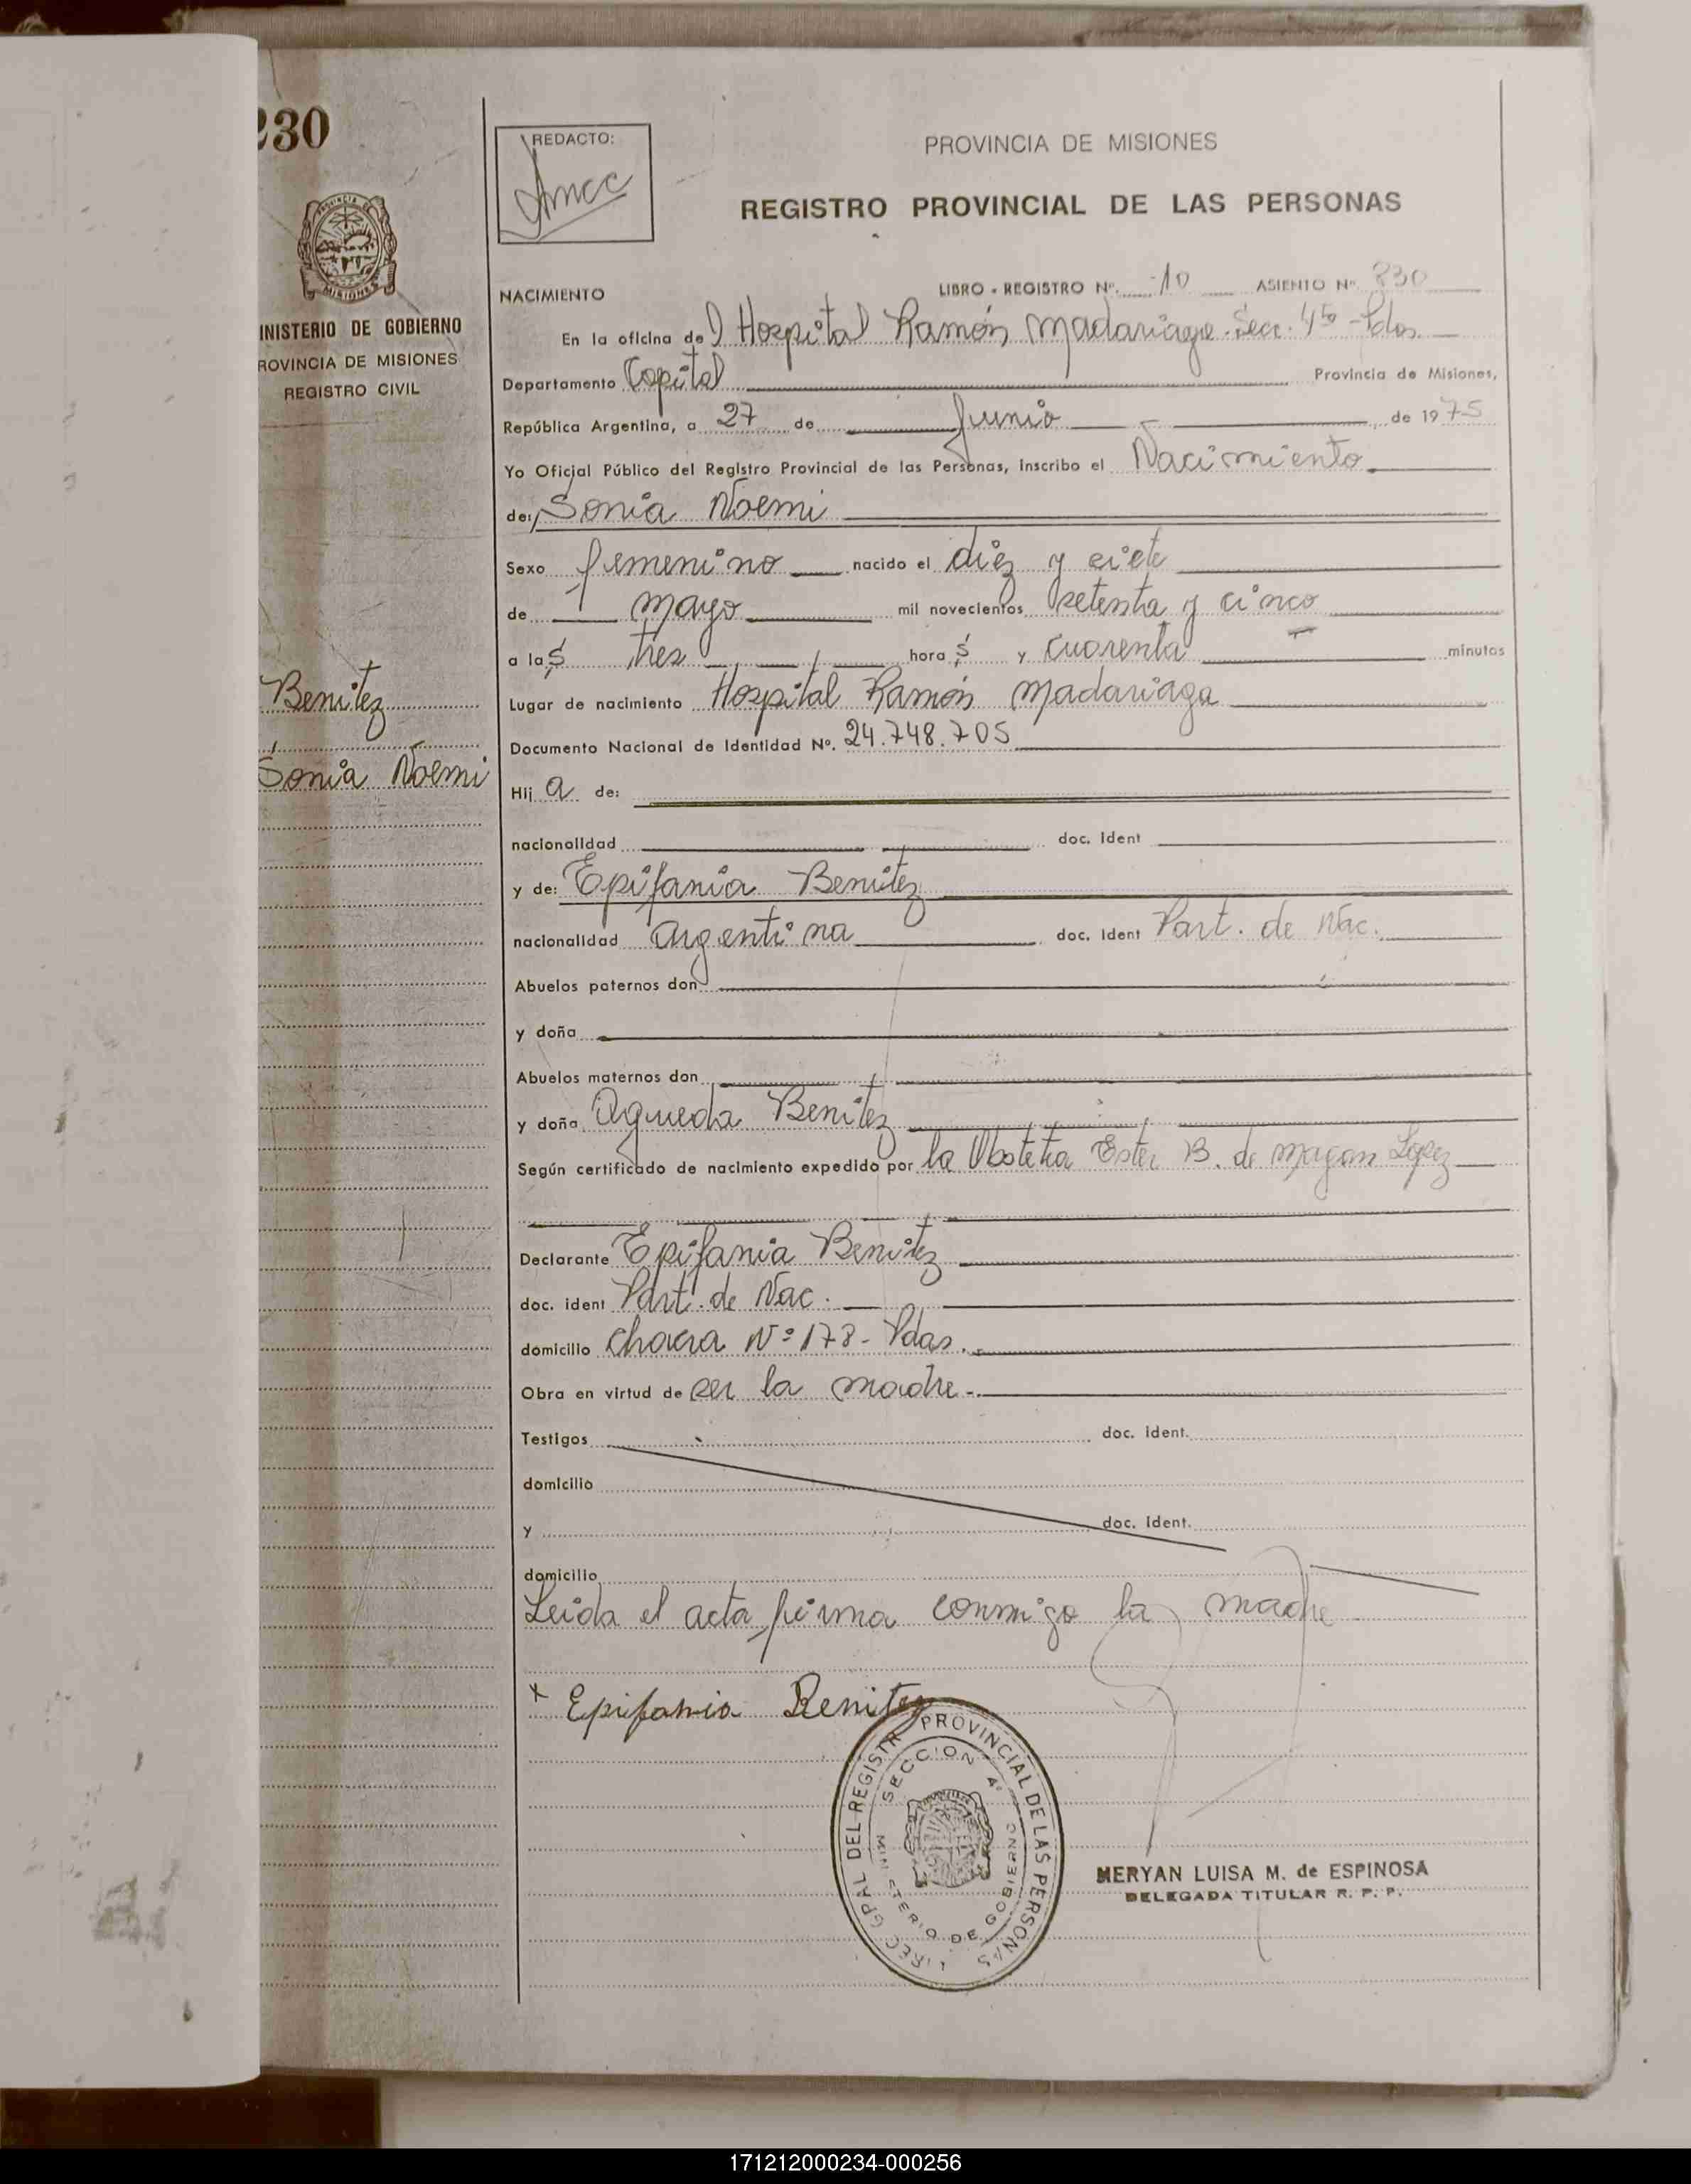 230
INISTERIO DE GOBIERNO
ROVINCIA DE MISIONES
REGISTRO CIVIL
Benitez
Sonia Noemi
REDACTO:
PROVINCIA DE MISIONES
REGISTRO PROVINCIAL DE LAS PERSONAS
NACIMIENTO LIBRO - REGISTRO Nº. 10 ASIENTO Nº. 230
En la oficina del Hospital Ramón Madariaga. Secc. 4ta - Pdas.
Departamento Capital Provincia de Misiones,
República Argentina, a 27 de Junio de 1975
Yo Oficial Público del Registro Provincial de las Personas, inscribo el Nacimiento
de: Sonia Noemi
Sexo femenino nacido el diez y siete
de mayo mil novecientos setenta y cinco
a las tres horas y cuarenta minutos
Lugar de nacimiento Hospital Ramón Madariaga
Documento Nacional de Identidad Nº. 24.748.705
Hija de:
nacionalidad doc. Ident
y de: Epifania Benitez
nacionalidad argentina doc. Ident Part. de Nac.
Abuelos paternos don
y doña
Abuelos maternos don
y doña Agueda Benitez
Según certificado de nacimiento expedido por la Obstetra Ester B. de Magan Lopez
Declarante Epifania Benitez
doc. ident Part. de Nac.
domicilio chacra Nº 178 - Pdas.
Obra en virtud de ser la madre.
Testigos doc. ident.
domicilio
y doc. Ident.
domicilio
Leida el acta firma conmigo la madre
x Epifania Benitez
REC GRAL DEL REGISTR PROVINCIAL DE LAS PERSONAS
SECCION 4º
MINISTERIO DE GOBIERNO
MERYAN LUISA M. de ESPINOSA
DELEGADA TITULAR R. P. P.
171212000234-000256